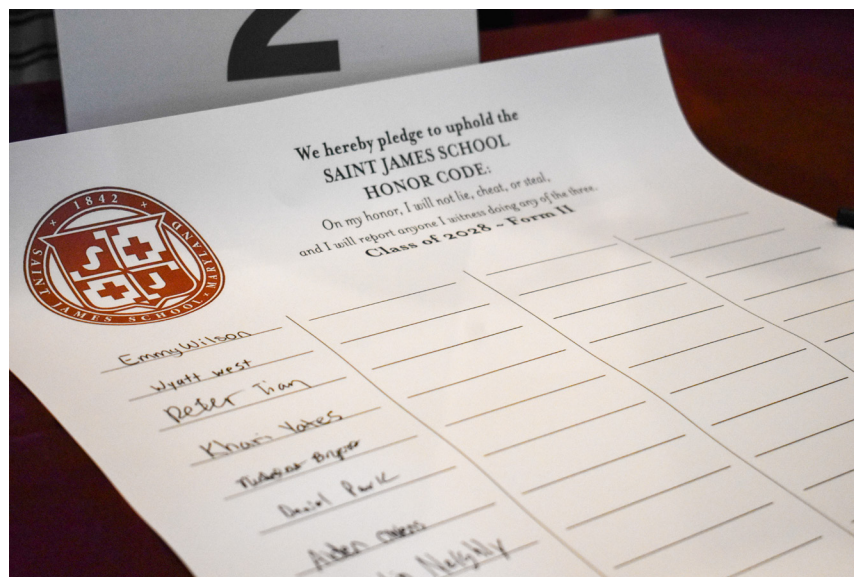 2
We hereby pledge to uphold the
SAINT JAMES SCHOOL
HONOR CODE:
On my honor, I will not lie, cheat, or steal,
and I will report anyone I witness doing any of the three.
Class of 2028 ~ Form II
1842
SAINT JAMES SCHOOL, MARYLAND
S
J
Emmy Wilson
Wyatt West
Peter Tian
Khari Yates
Daniel Park
Aiden